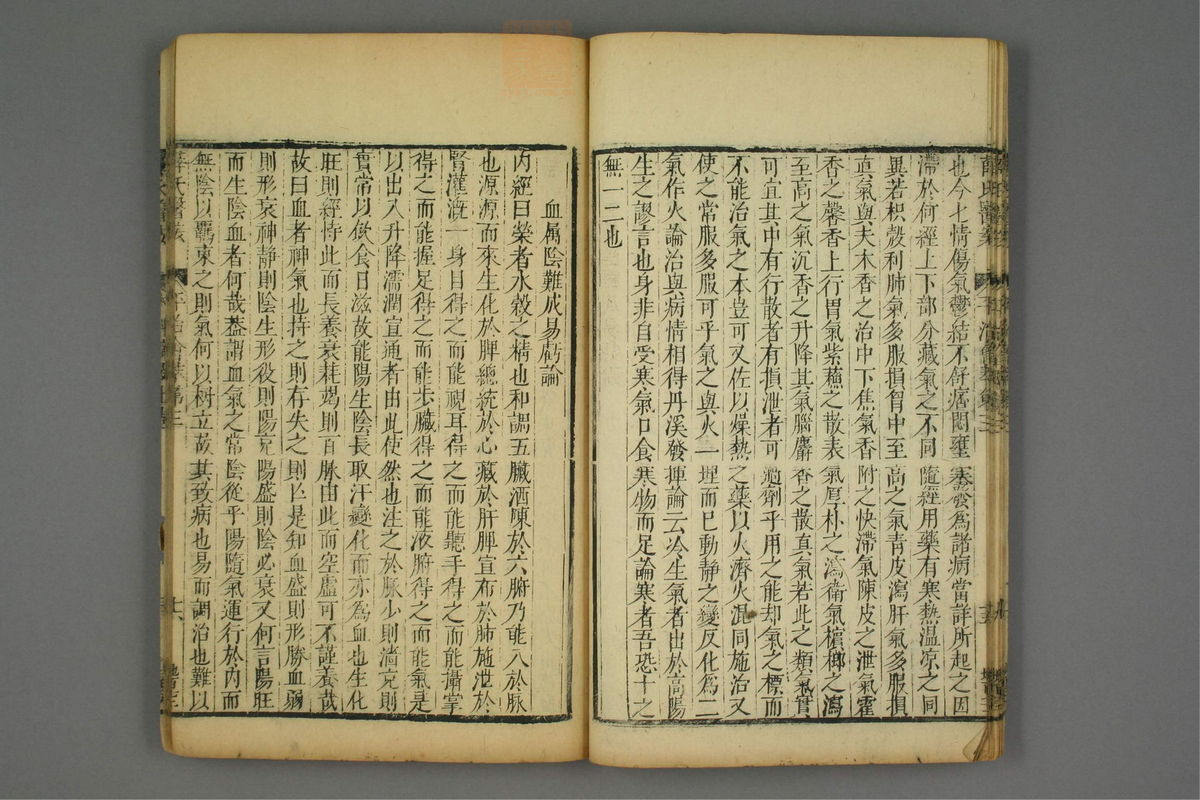 也今七情傷氣鬱結不舒痞悶壅塞發爲諸病當詳所起之因
滯於何經上下部分藏氣之不同隨經用藥有寒熱温凉之同
異若枳殼利肺氣多服損胷中至高之氣青皮瀉肝氣多服損
眞氣與夫木香之治中下焦氣香附之快滯氣陳皮之泄氣霍
香之馨香上行胃氣紫蘇之散表氣厚朴之瀉衛氣檳榔之瀉
至高之氣沉香之升降其氣腦麝香之散真氣若此之類氣實
可宜其中有行散者有損泄者可過劑乎用之能却氣之標而
不能治氣之本豈可又佐以燥熱之藥以火濟火混同施治又
使之常服多服可乎氣之與火一理而已動静之變反化爲二
氣作火論治與病情相得丹溪發揮論云冷生氣者出於高陽
生之謬言也身非自受寒氣口食寒物而足論寒者吾恐十之
無一二也
十五
血屬陰難成易虧論
内經曰榮者水穀之精也和調五臟洒陳於六腑乃能入於脉
也源源而來生化於脾總統於心藏於肝脾宣布於肺施泄於
腎灌溉一身目得之而能視耳得之而能聽手得之而能攝掌
得之而能握足得之而能步臟得之而能液腑得之而能氣是
以出入升降濡潤宣通者由此使然也注之於脉少則濇充則
實常以飲食日滋故能陽生陰長取汗變化而亦爲血也生化
旺則經恃此而長養衰耗竭則百脉由此而空虚可不謹養哉
故曰血者神氣也持之則存失之則亡是知血盛則形勝血弱
則形衰神静則陰生形役則陽亢陽盛則陰必衰又何言陽旺
而生陰血者何哉蓋謂血氣之常陰從乎陽隨氣運行於内而
無陰以羈束之則氣何以树立故其致病也易而調治也難以
十六